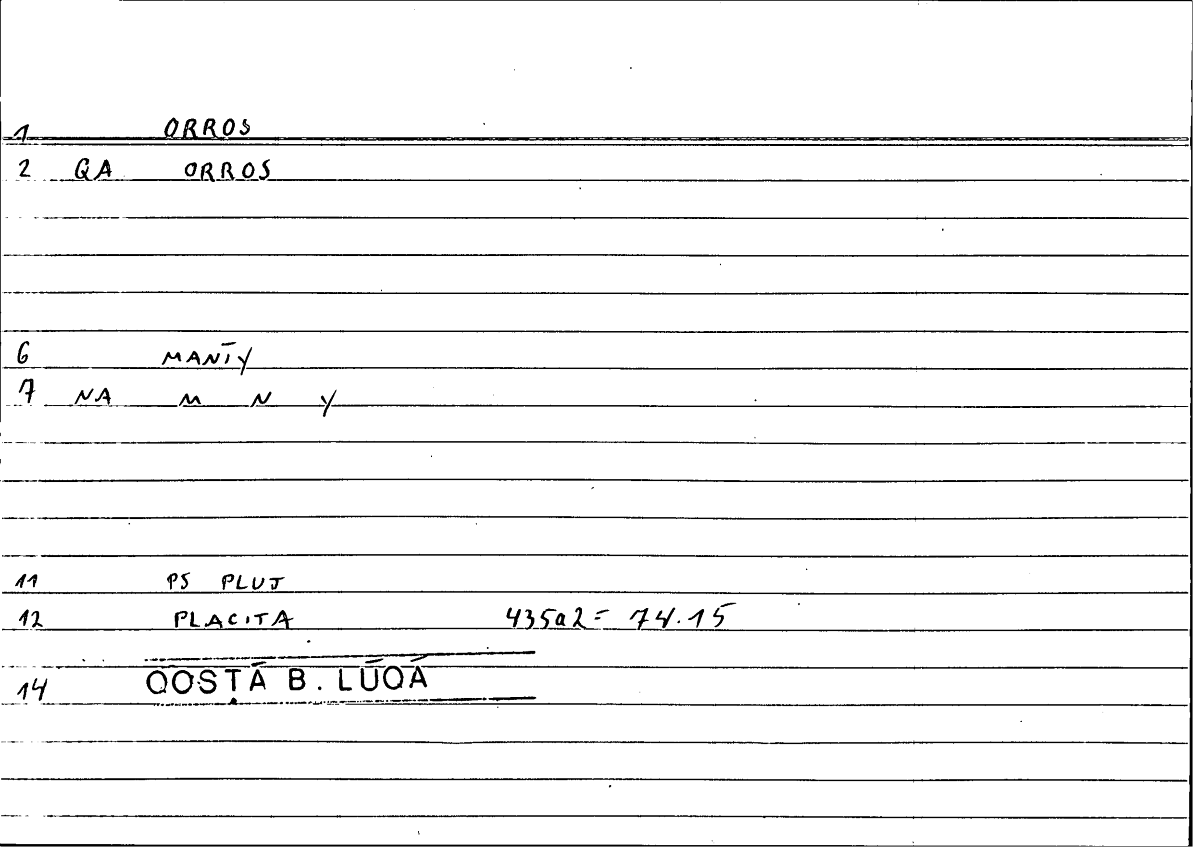 1 ORROS
2 QA ORROS
6 MANĪY
7 NA M N Y
11 PS PLUT
12 PLACITA 435a2 = 74.15
14 QOSṬĀ B. LŪQĀ